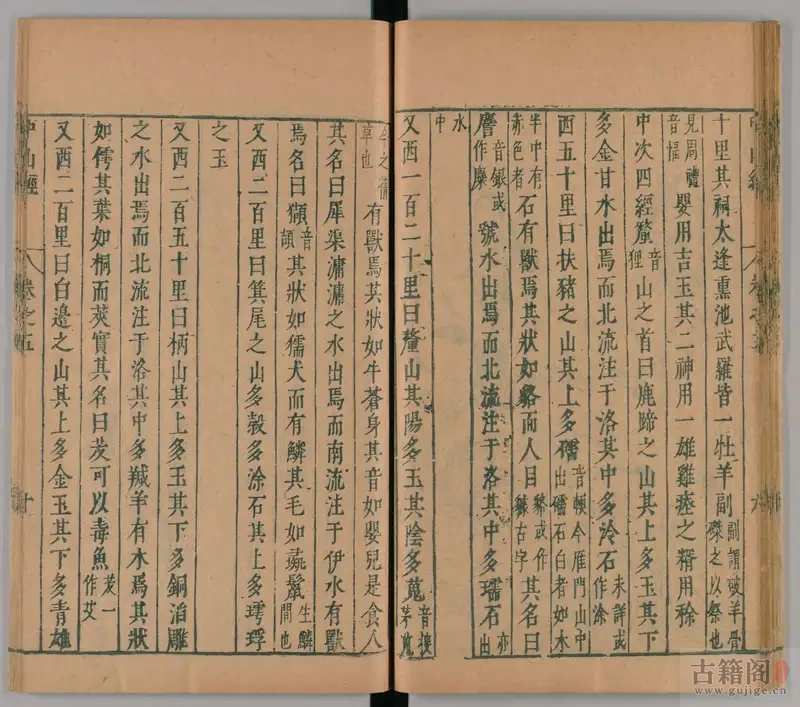 十里其祠太逢熏池武羅皆一牡羊副副謂破羊骨磔之以祭也
見周禮音愊嬰用吉玉其二神用一雄雞瘞之糈用稌
中次四經釐音狸山之首曰鹿蹄之山其上多玉其下
多金甘水出焉而北流注于洛其中多泠石未詳或作涂
西五十里曰扶豬之山其上多礝音耎今雁門山中出礝石白者如水
半中有赤色者石有獸焉其狀如貉而人目貉或作古字其名曰
䴦音銀或作麋虢水出焉而北流注于洛其中多瑌石亦出
水中
又西一百二十里曰釐山其陽多玉其陰多蒐音搜茅蒐
今之蒨草也有獸焉其狀如牛蒼身其音如嬰兒是食人
其名曰犀渠滽滽之水出焉而南流注于伊水有獸
焉名曰䝞音頡其狀如獳犬而有鱗其毛如彘鬣生鱗間也
又西二百里曰箕尾之山多榖多涂石其上多㻬琈
之玉
又西二百五十里曰柄山其上多玉其下多銅滔雕
之水出焉而北流注于洛其中多羬羊有木焉其狀
如樗其葉如桐而莢實其名曰茇可以毒魚茇一作艾
又西二百里曰白邊之山其上多金玉其下多青雄
中山經
卷之五
十
古籍阁
www.gujige.com